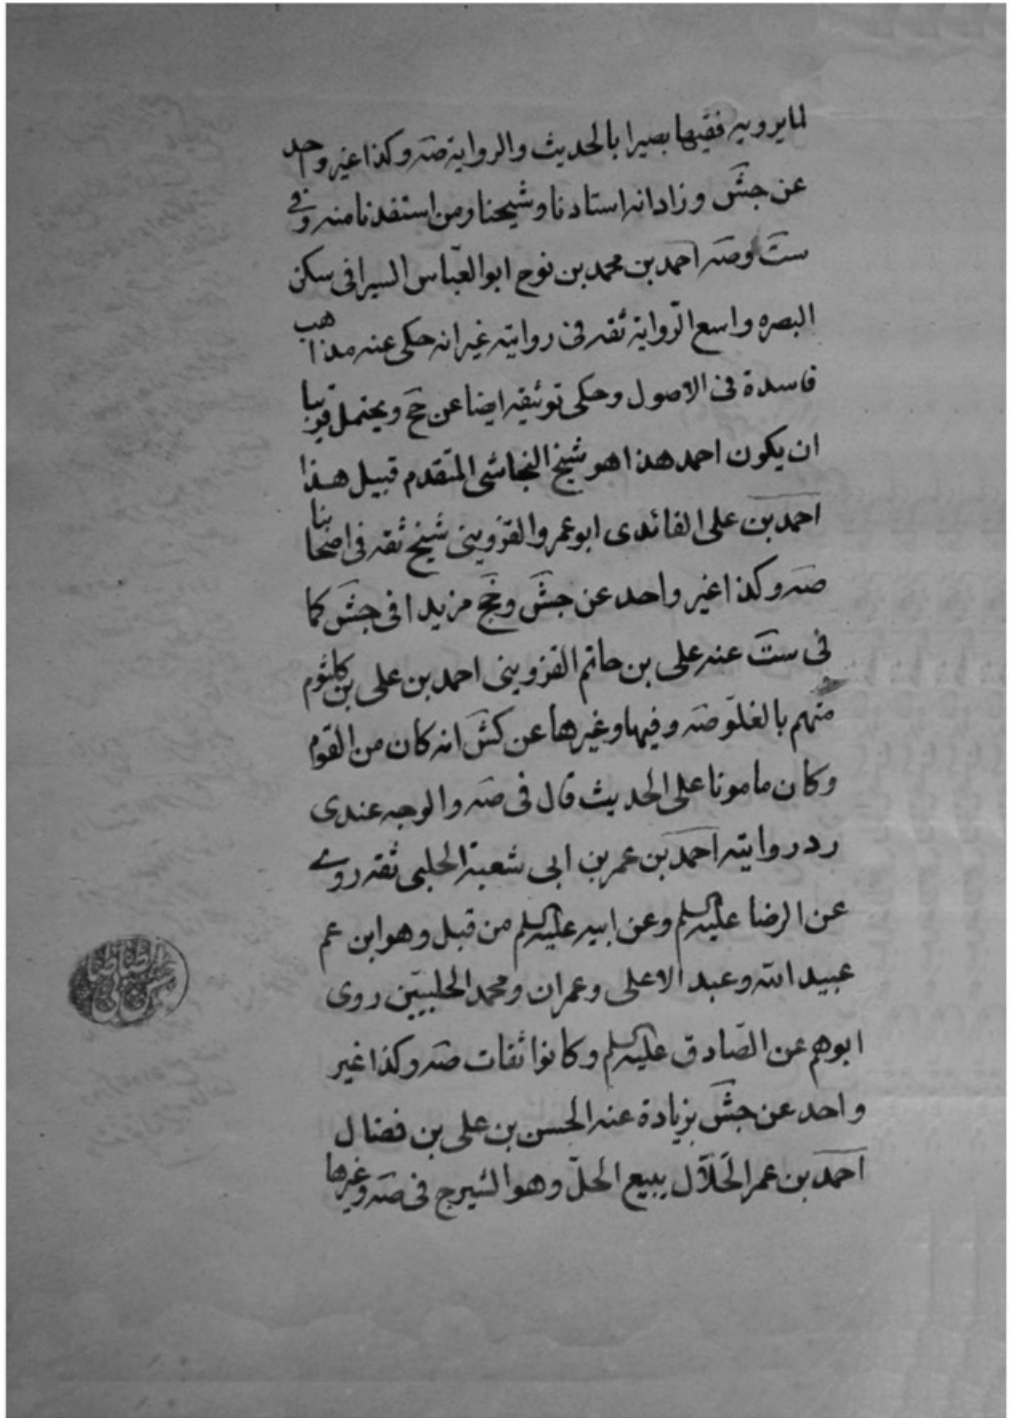 لما يرويه فقيها بصيرا بالحديث والرواية صه وكذا غير واحد
عن جش وزاد انه استادنا وشيخنا ومن استفدنا منه وفى
ست وصه احمد بن محمد بن نوح ابو العباس السيرافى سكن
البصره واسع الرواية ثقه فى روايته غير انه حكى عنه مذاهب
فاسدة فى الاصول وحكى توثيقه ايضا عن جخ ويحتمل قريبا
ان يكون احمد هذا هو شيخ النجاشى المتقدم قبيل هذا
احمد بن على الفائدى ابو عمرو القزوينى شيخ ثقه فى اصحابنا
صه وكذا غير واحد عن جش وجخ مزيدا فى جش كما
فى ست عنه على بن حاتم القزوينى احمد بن على بن كلثوم
متهم بالغلو صه وفيها وغيرها عن كش انه كان من القوم
وكان مامونا على الحديث قال فى صه والوجه عندى
رد روايته احمد بن عمر بن ابى شعبة الحلبى ثقه روى
عن الرضا عليه السلم وعن ابيه عليه السلم من قبل وهو ابن عم
عبيد الله وعبد الاعلى وعمران ومحمد الحلبيين روى
ابوهم عن الصادق عليه السلم وكانوا ثقات صه وكذا غير
واحد عن جش بزيادة عنه الحسن بن على بن فضال
احمد بن عمر الحلال يبيع الحل وهو الشيرج فى صه وغيرها